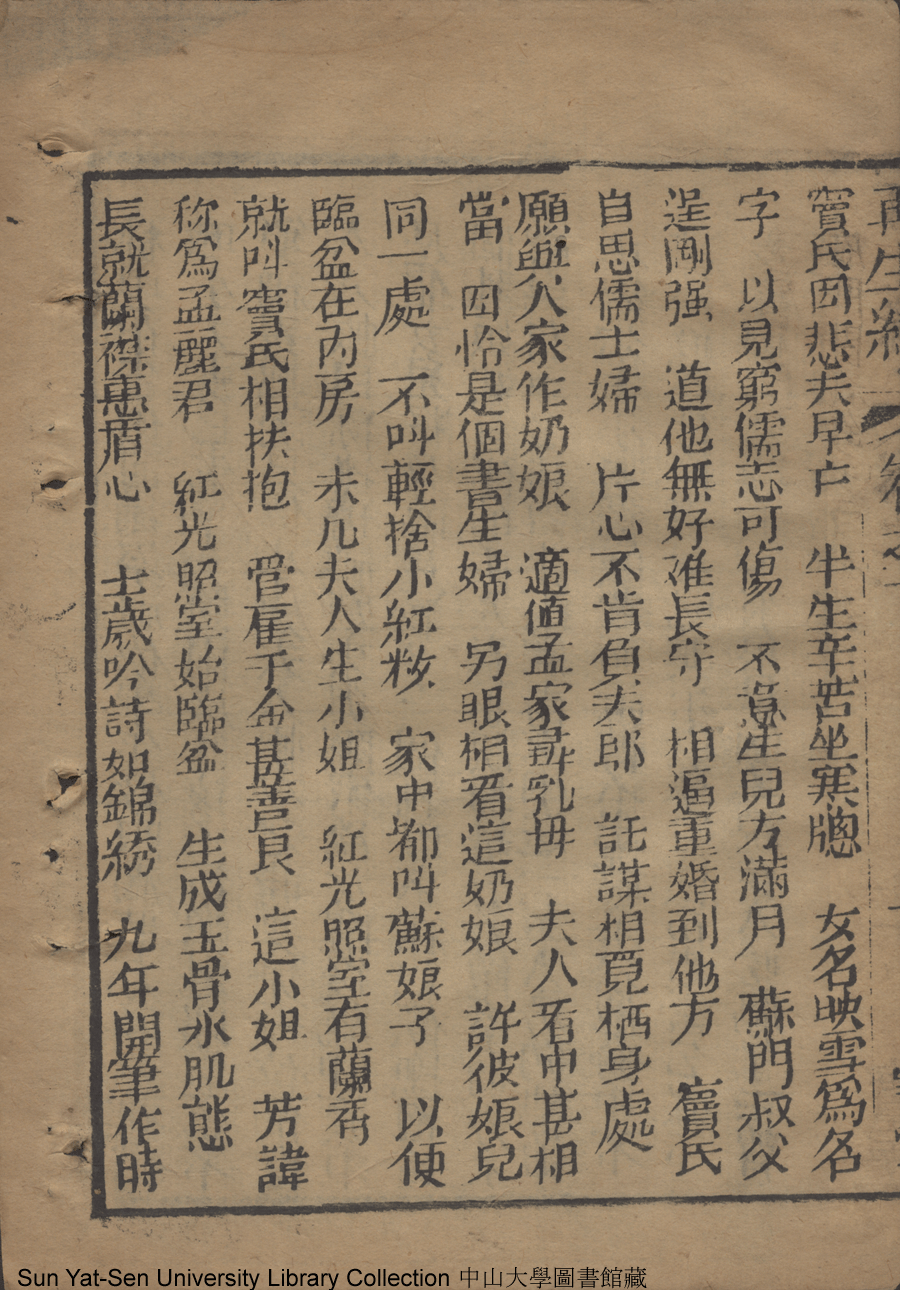 再生緣 卷之一
竇氏因悲夫早亡 半生辛苦坐寒牕 女名映雪爲名
字 以見窮儒志可傷 不意生兒方滿月 蘇門叔父
逞剛强 道他無好难長守 相逼重婚到他方 竇氏
自思儒士婦 片心不肯負夫郎 託謀相覓栖身處
願與人家作奶娘 適值孟家尋乳母 夫人看中甚相
當 因恰是個書生婦 另眼相看這奶娘 許彼娘兒
同一處 不叫輕捨小紅粧 家中都叫蘇娘子 以便
臨盆在內房 未几夫人生小姐 紅光照室有蘭香
就叫竇氏相扶抱 管雇千金甚善良 這小姐 芳諱
称爲孟麗君 紅光照室始臨盆 生成玉骨氷肌態
長就蘭襟惠盾心 七歲吟詩如錦綉 九年開筆作時
Sun Yat-Sen University Library Collection 中山大學圖書館藏